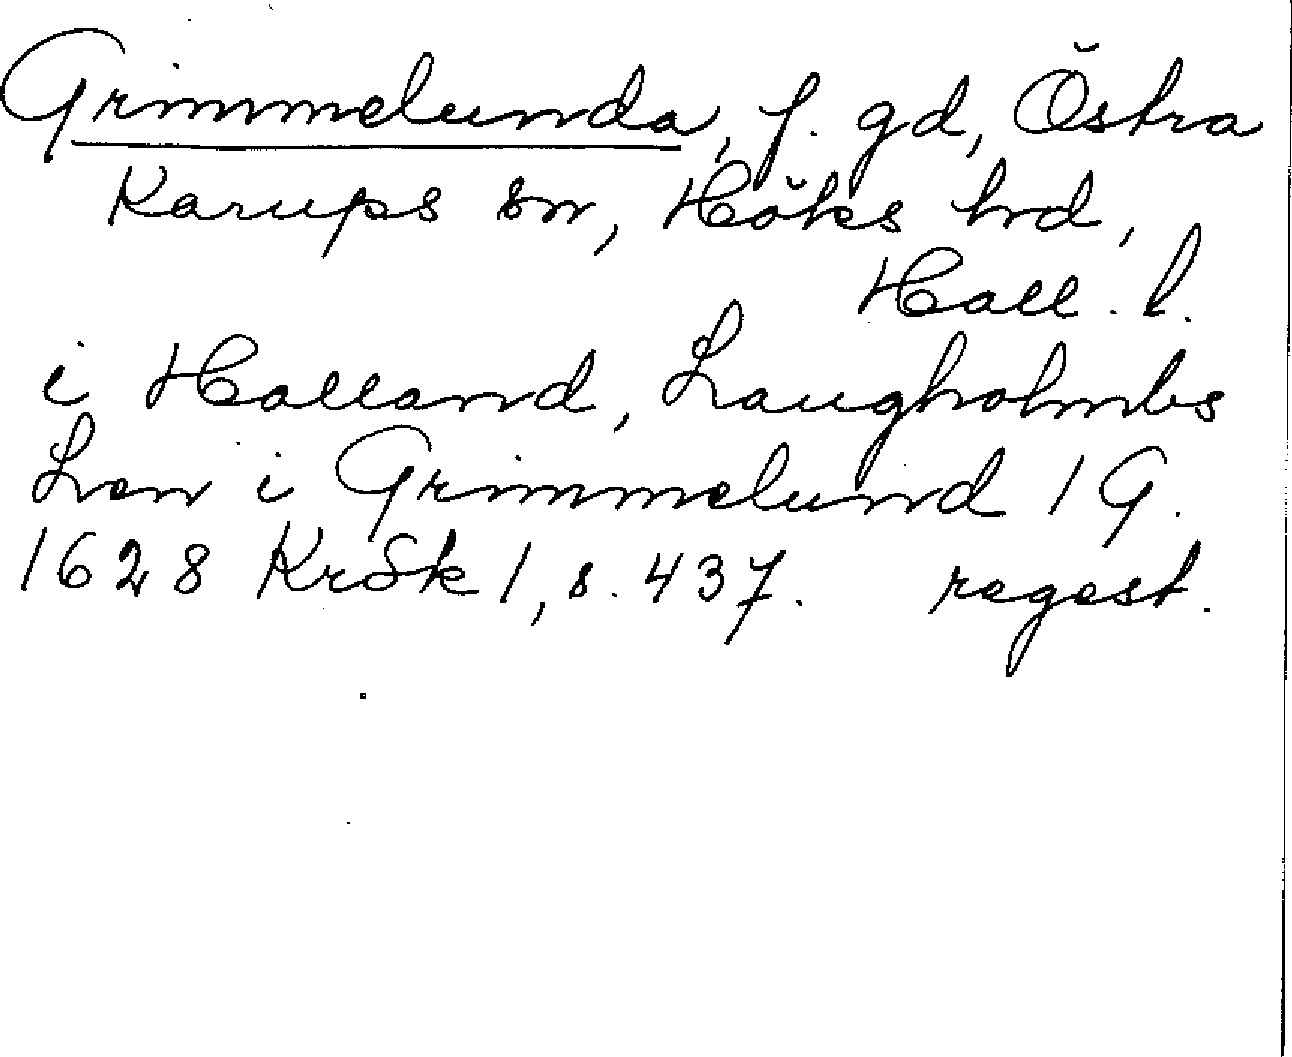 Grimmelunda, f. gd, Östra
Karups sn, Höks hd,
Hall. l.
i Halland, Laugholmbs
Len i Grimmelund 1 G.
1628 KrSk 1, s. 437. regest.